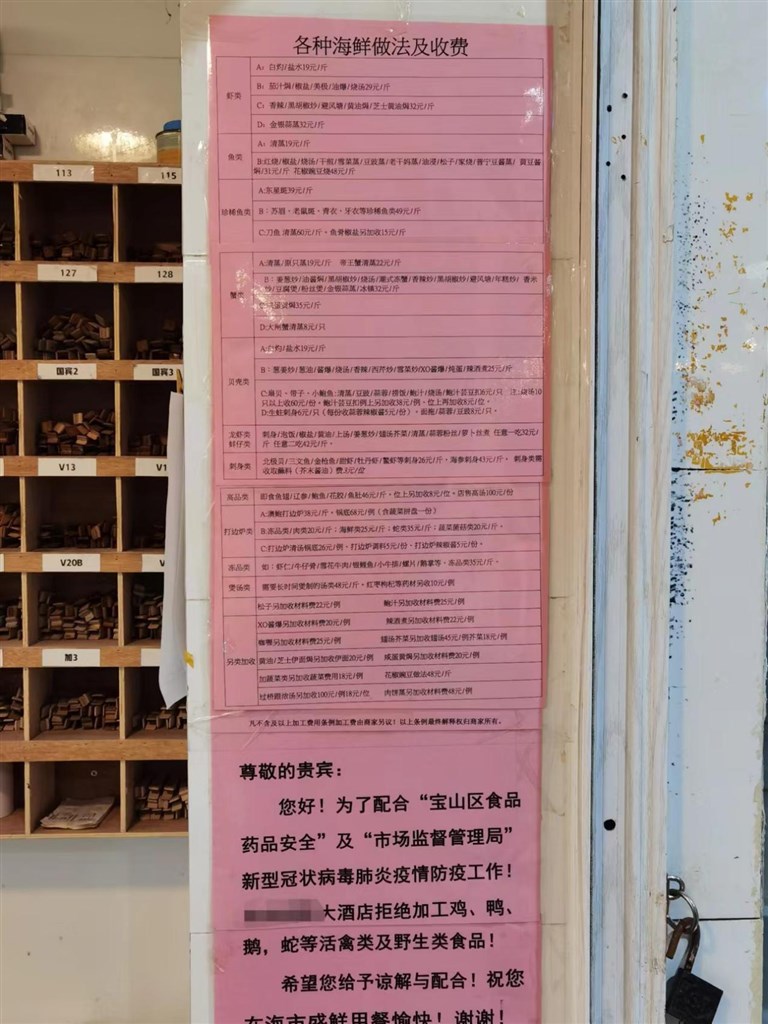 各种海鲜做法及收费
虾类
A：白灼/盐水19元/斤
B：茄汁焗/椒盐/美极/油爆/烧汤29元/斤
C：香辣/黑胡椒炒/避风塘/黄油焗/芝士黄油焗32元/斤
D：金银蒜蒸32元/斤
鱼类
A：清蒸19元/斤
B:红烧/椒盐/烧汤/干煎/雪菜蒸/豆豉蒸/老干妈蒸/油浸/松子/家烧/普宁豆酱蒸/ 黄豆酱
焗/31元/斤 花椒豌豆烧48元/斤
珍稀鱼类
A:东星斑39元/斤
B：苏眉、老鼠斑、青衣、牙衣等珍稀鱼类49元/斤
C:刀鱼 清蒸60元/斤。鱼骨椒盐另加收15元/斤
蟹类
A:清蒸/原只蒸19元/斤 帝王蟹清蒸22元/斤
B：姜葱炒/油酱焗/黑胡椒炒/烧汤/潮式冻蟹/香辣炒/黑胡椒炒/避风塘/年糕炒/
炒/豆腐煲/粉丝煲/金银蒜蒸/冰镇32元/斤
焗35元/斤
D:大闸蟹清蒸8元/只
贝壳类
A:白灼/盐水19元/斤
B：葱姜炒/葱油/酱爆/烧汤/香辣/西芹炒/雪菜炒/XO酱爆/炖蛋/辣酒煮25元/斤
C:扇贝、带子、小鲍鱼:清蒸/豆豉/蒜蓉/捞饭/鲍汁/烧汤/鲍汁芸豆扣6元/只 注:烧汤10
只以上收60元/份。鲍汁芸豆扣例上另加收38元/例、位上再加收8元/位。
D:生蚝刺身6元/只（每份收蒜蓉辣椒酱5元/份）、面拖/蒜蓉/豆豉8元/只。
龙虾类
鲜仔类
刺身/泡饭/椒盐/黄油/上汤/姜葱炒/罐汤芥菜/清蒸/蒜蓉粉丝/萝卜丝煮 任意一吃32元/
斤 任意二吃42元/斤。
刺身类
北极贝/三文鱼/金枪鱼/甜虾/牡丹虾/鳌虾等刺身26元/斤、海参刺身43元/斤。 刺身类需
收取蘸料（芥末酱油）费3元/位
高品类
即食鱼翅/辽参/鲍鱼/花胶/鱼肚46元/斤。位上另加收8元/位。店售高汤100元/份
打边炉类
A:澳鲍打边炉38元/斤。锅底68元/例（含蔬菜拼盘一份）
B:冻品类/肉类20元/斤；海鲜类25元/斤；蛇类35元/斤；蔬菜菌菇类20元/斤。
C:打边炉清汤锅底26元/例、打边炉调料5元/份、打边炉辣椒酱5元/份。
冻品类
如：虾仁/牛仔骨/雪花牛肉/银鳕鱼/小牛排/螺片/鹅掌等、冻品类35元/斤。
煲汤类
需要长时间煲制的汤类48元/斤。红枣枸杞等药材另收10元/例
另类加收
松子另加收材料费22元/例 鲍汁另加收材料费25元/例
XO酱爆另加收材料费20元/例 辣酒煮另加收材料费22元/例
咖喱另加收材料费25元/例 罐汤芥菜另加收罐汤45元/例芥菜18元/例
黄油/芝士伊面焗另加收伊面20元/例 咸蛋黄焗另加收材料费20元/例
加蔬菜类另加收蔬菜费用18元/例 花椒豌豆做法48元/斤
过桥跟捞汤另加收100元/例18元/位 肉饼蒸另加收材料费48元/例
凡不含及以上加工费用条例加工费由商家另议！以上条例最终解释权归商家所有。
尊敬的贵宾：
您好！为了配合“宝山区食品
药品安全”及“市场监督管理局”
新型冠状病毒肺炎疫情防疫工作！
大酒店拒绝加工鸡、鸭、
鹅，蛇等活禽类及野生类食品！
希望您给予谅解与配合！祝您
在海市盛鲜用餐愉快！谢谢！
113
115
127
128
国宾2
国宾3
V13
V1
V20B
V
旭3